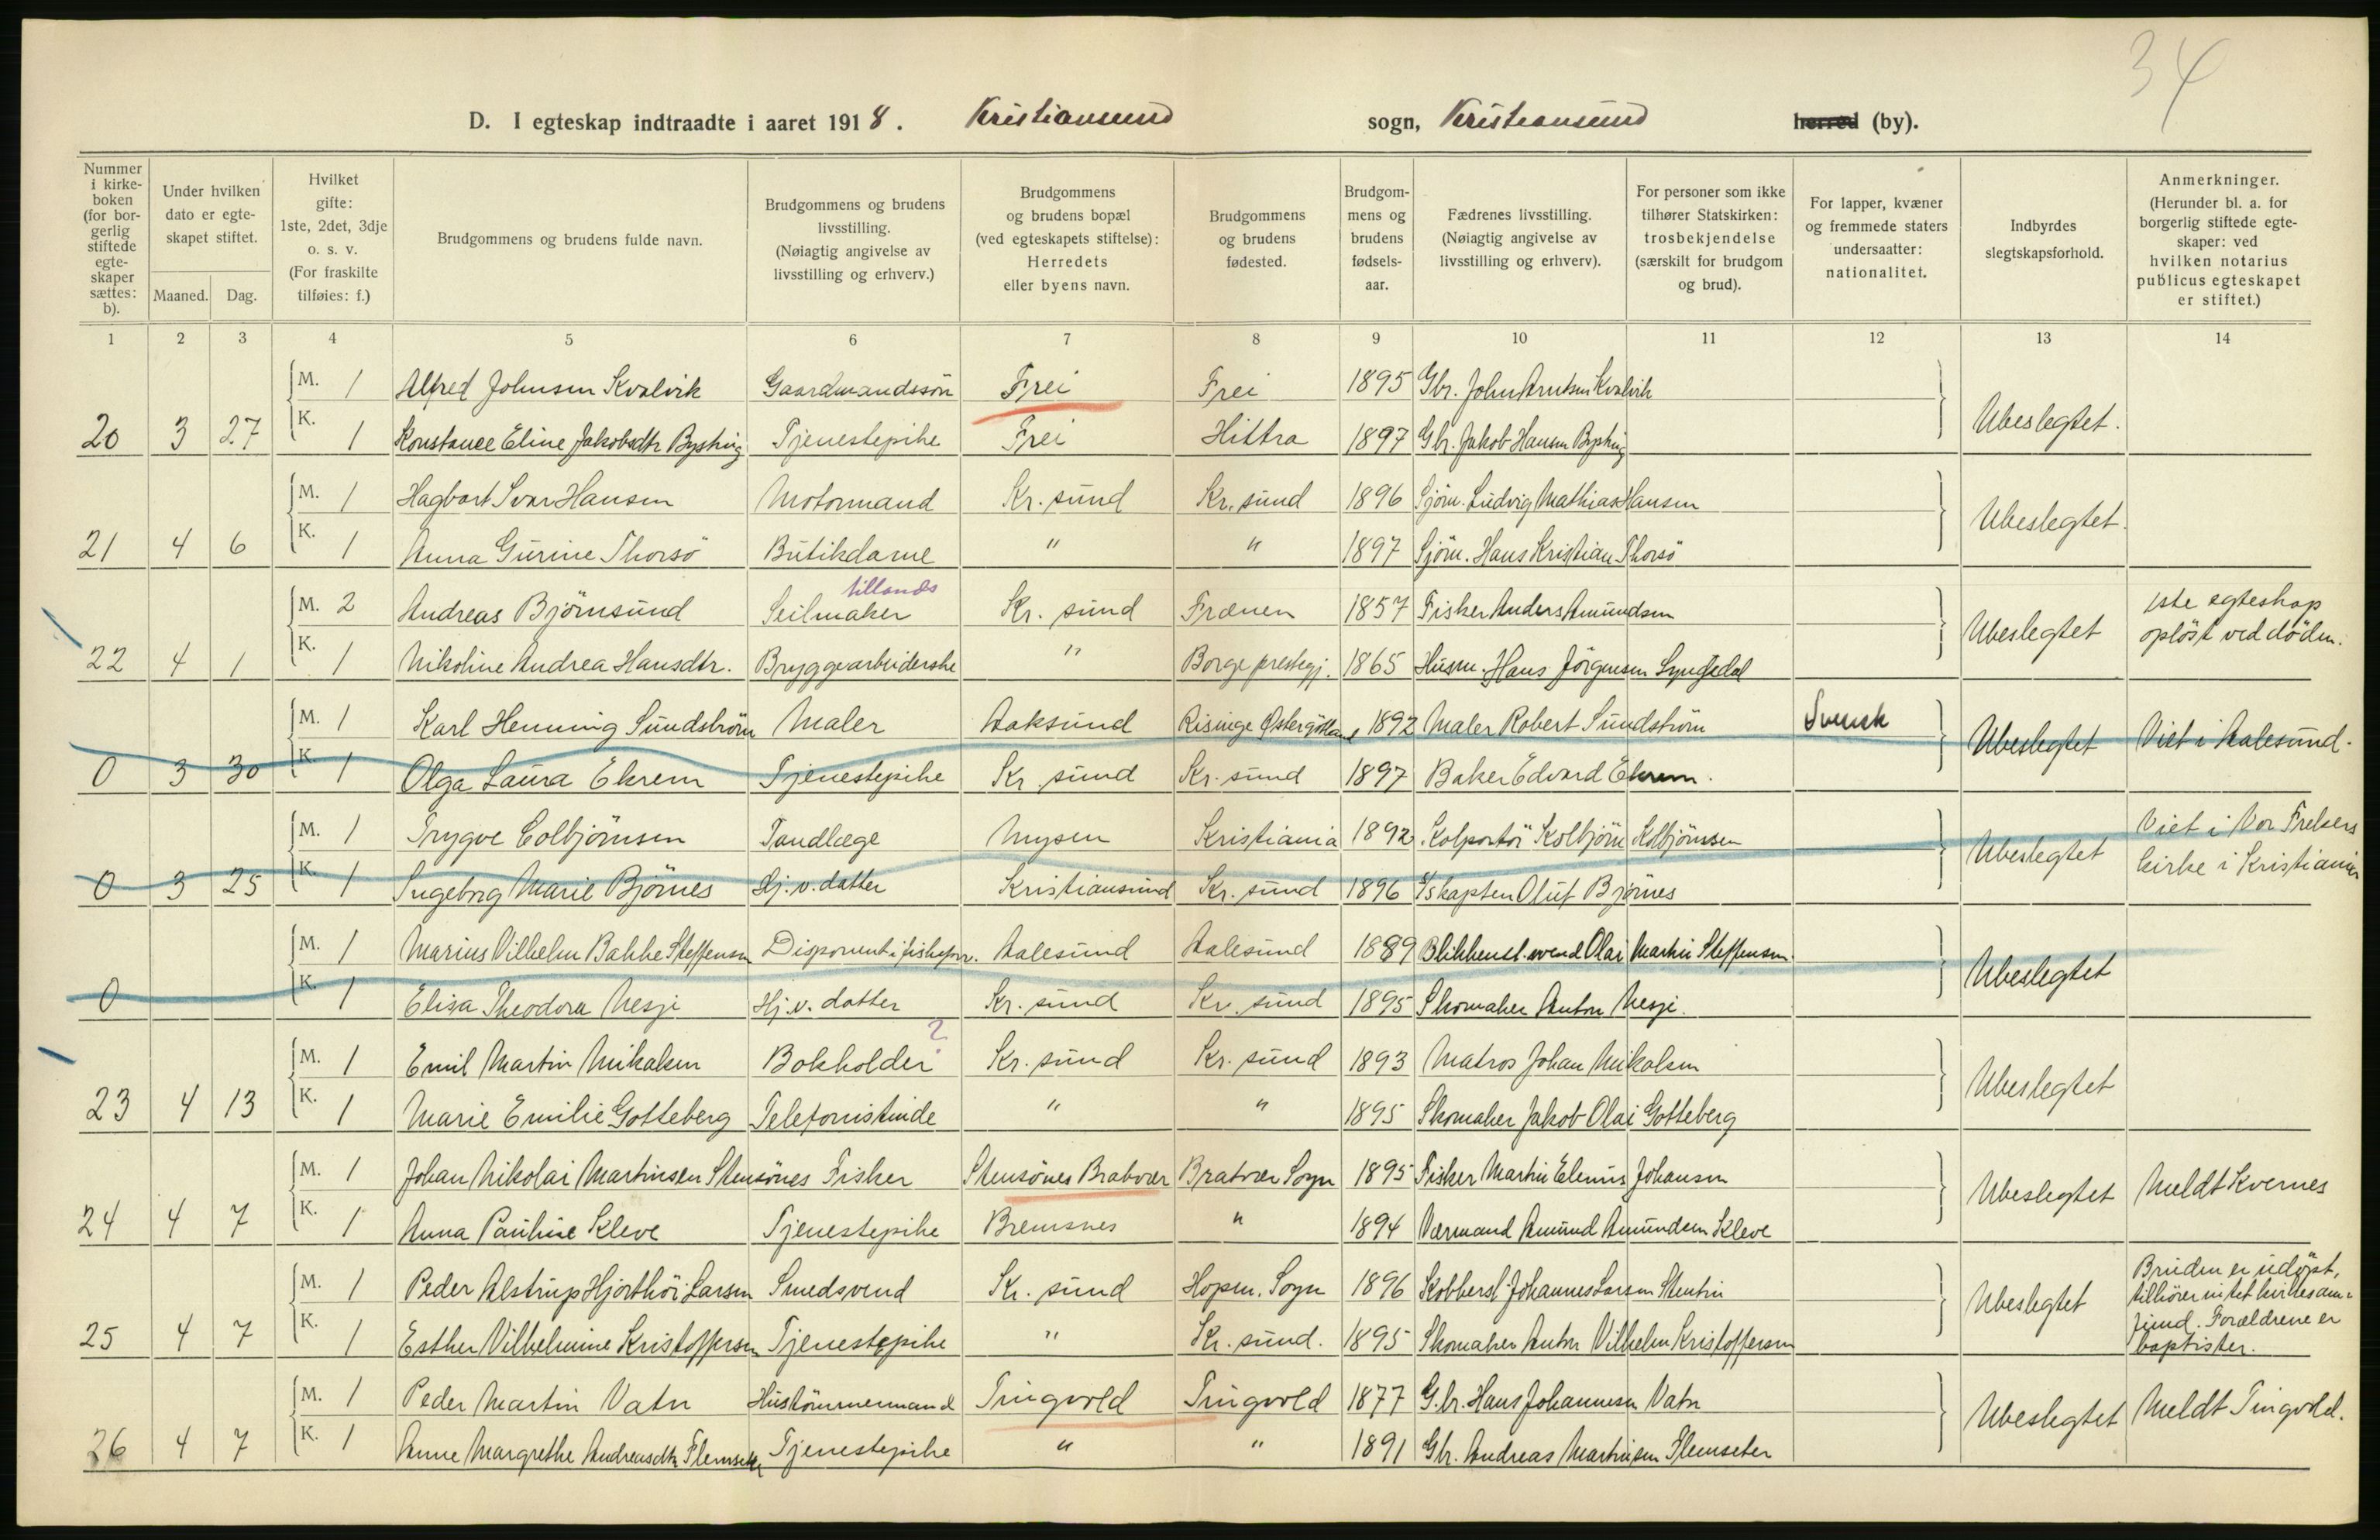 34
D. I egteskap indtraadte i aaret 1918. Kristiansund sogn, Kristiansund herred (by).
Nummer i kirkeboken (for borgerlig stiftede egteskaper sættes: b).
Under hvilken dato er egteskapet stiftet.
Maaned. Dag.
Hvilket gifte: 1ste, 2det, 3dje o. s. v. (For fraskilte tilføies: f.)
Brudgommens og brudens fulde navn.
Brudgommens og brudens livsstilling. (Nøiagtig angivelse av livsstilling og erhverv.)
Brudgommens og brudens bopæl (ved egteskapets stiftelse): Herredets eller byens navn.
Brudgommens og brudens fødested.
Brudgommens og brudens fødselsaar.
Fædrenes livsstilling. (Nøiagtig angivelse av livsstilling og erhverv).
For personer som ikke tilhører Statskirken: trosbekjendelse (særskilt for brudgom og brud).
For lapper, kvæner og fremmede staters undersaatter: nationalitet.
Indbyrdes slegtskapsforhold.
Anmerkninger. (Herunder bl. a. for borgerlig stiftede egteskaper: ved hvilken notarius publicus egteskapet er stiftet.)
1 2 3 4 5 6 7 8 9 10 11 12 13 14
M. 1 Alfred Johnsen Kvalvik Gaardmandssön Frei Frei 1895 Gbr. John Arntsen Kvalvik
20 3 27 K. 1 Konstance Eline Jakobsdtr Bystring Tjenestepike Frei Hittra 1897 Gbr. Jakob Hansen Bystring Ubeslegtet.
M. 1 Hagbart Ivar Hansen Motormand Kr. sund Kr. sund 1896 Sjöm. Ludvig Mathias Hansen
21 4 6 K. 1 Anna Gurine Thorsö Butikdame " " 1897 Sjöm. Hans Kristian Thorsö Ubeslegtet.
tillands
M. 2 Andreas Björnsund Seilmaker Kr. sund Frænen 1857 Fisker Anders Amundsen 1ste egteskap
22 4 1 K. 1 Nikoline Andrea Hansdtr. Bryggearbeiderske " Borge prestegj. 1865 Husm. Hans Jörgensen Lyngedal Ubeslegtet opløst ved döden.
M. 1 Karl Henning Sundström Maler Aaksund Risinge Østergötland 1892 Maler Robert Sundström Svensk
0 3 30 K. 1 Olga Laura Ekrem Tjenestepike Kr. sund Kr. sund 1897 Baker Edvard Ekrem. Ubeslegtet Viet i Aalesund.
M. 1 Trygve Colbjörnsen Tandlæge Mysen Kristiania 1892 Kolportör Kolbjörn Kolbjörnsen Viet i Vor Frelsers
0 3 25 K. 1 Ingeborg Marie Björnes Hj. v. datter Kristiansund Kr. sund 1896 S/s kaptein Oluf Björnes Ubeslegtet kirke i Kristiania
M. 1 Marius Vilhelm Bakke Steffensen Disponent i fiskeforr. Aalesund Aalesund 1889 Blikkensl. svend Olai Martin Steffensen
0 K. 1 Elisa Theodora Nesje Hj. v. datter Kr. sund Kr. sund 1895 Skomaker Anton Nesje. Ubeslegtet
?
M. 1 Emil Martin Mikalsen Bokholder Kr. sund Kr. sund 1893 Matros Johan Mikalsen
23 4 13 K. 1 Marie Emilie Gotteberg Telefonistinde " " 1895 Skomaker Jakob Olai Gotteberg Ubeslegtet
M. 1 Johan Nikolai Martinsen Stensönes Fisker Stensönes Bratvær Bratvær Sogn 1895 Fisker Martin Elenius Johansen
24 4 7 K. 1 Anna Pauline Kleve Tjenestepike Bremsnes " 1894 Værmand Amund Amundsen Kleve Ubeslegtet Meldt Kvernes
M. 1 Peder Alstrup Hjorthöi Larsen Smedsvend Kr. sund Hopen Sogn 1896 Kobbersl. Johannes Larsen Stentin Bruden er udöpt,
tilhörer intet kirkesam-
25 4 7 K. 1 Esther Vilhelmine Kristoffersen Tjenestepike " Kr. sund. 1895 Skomaker Anton Vilhelm Kristoffersen Ubeslegtet fund. Forældrene er
baptister.
M. 1 Peder Martin Vatn Hustömmermand Tingvold Tingvold 1877 G.br. Hans Johannesen Vatn
26 4 7 K. 1 Anne Margrethe Andreasdtr Flemseter Tjenestepike " " 1891 Gbr. Andreas Martinsen Flemseter Ubeslegtet Meldt Tingvold.